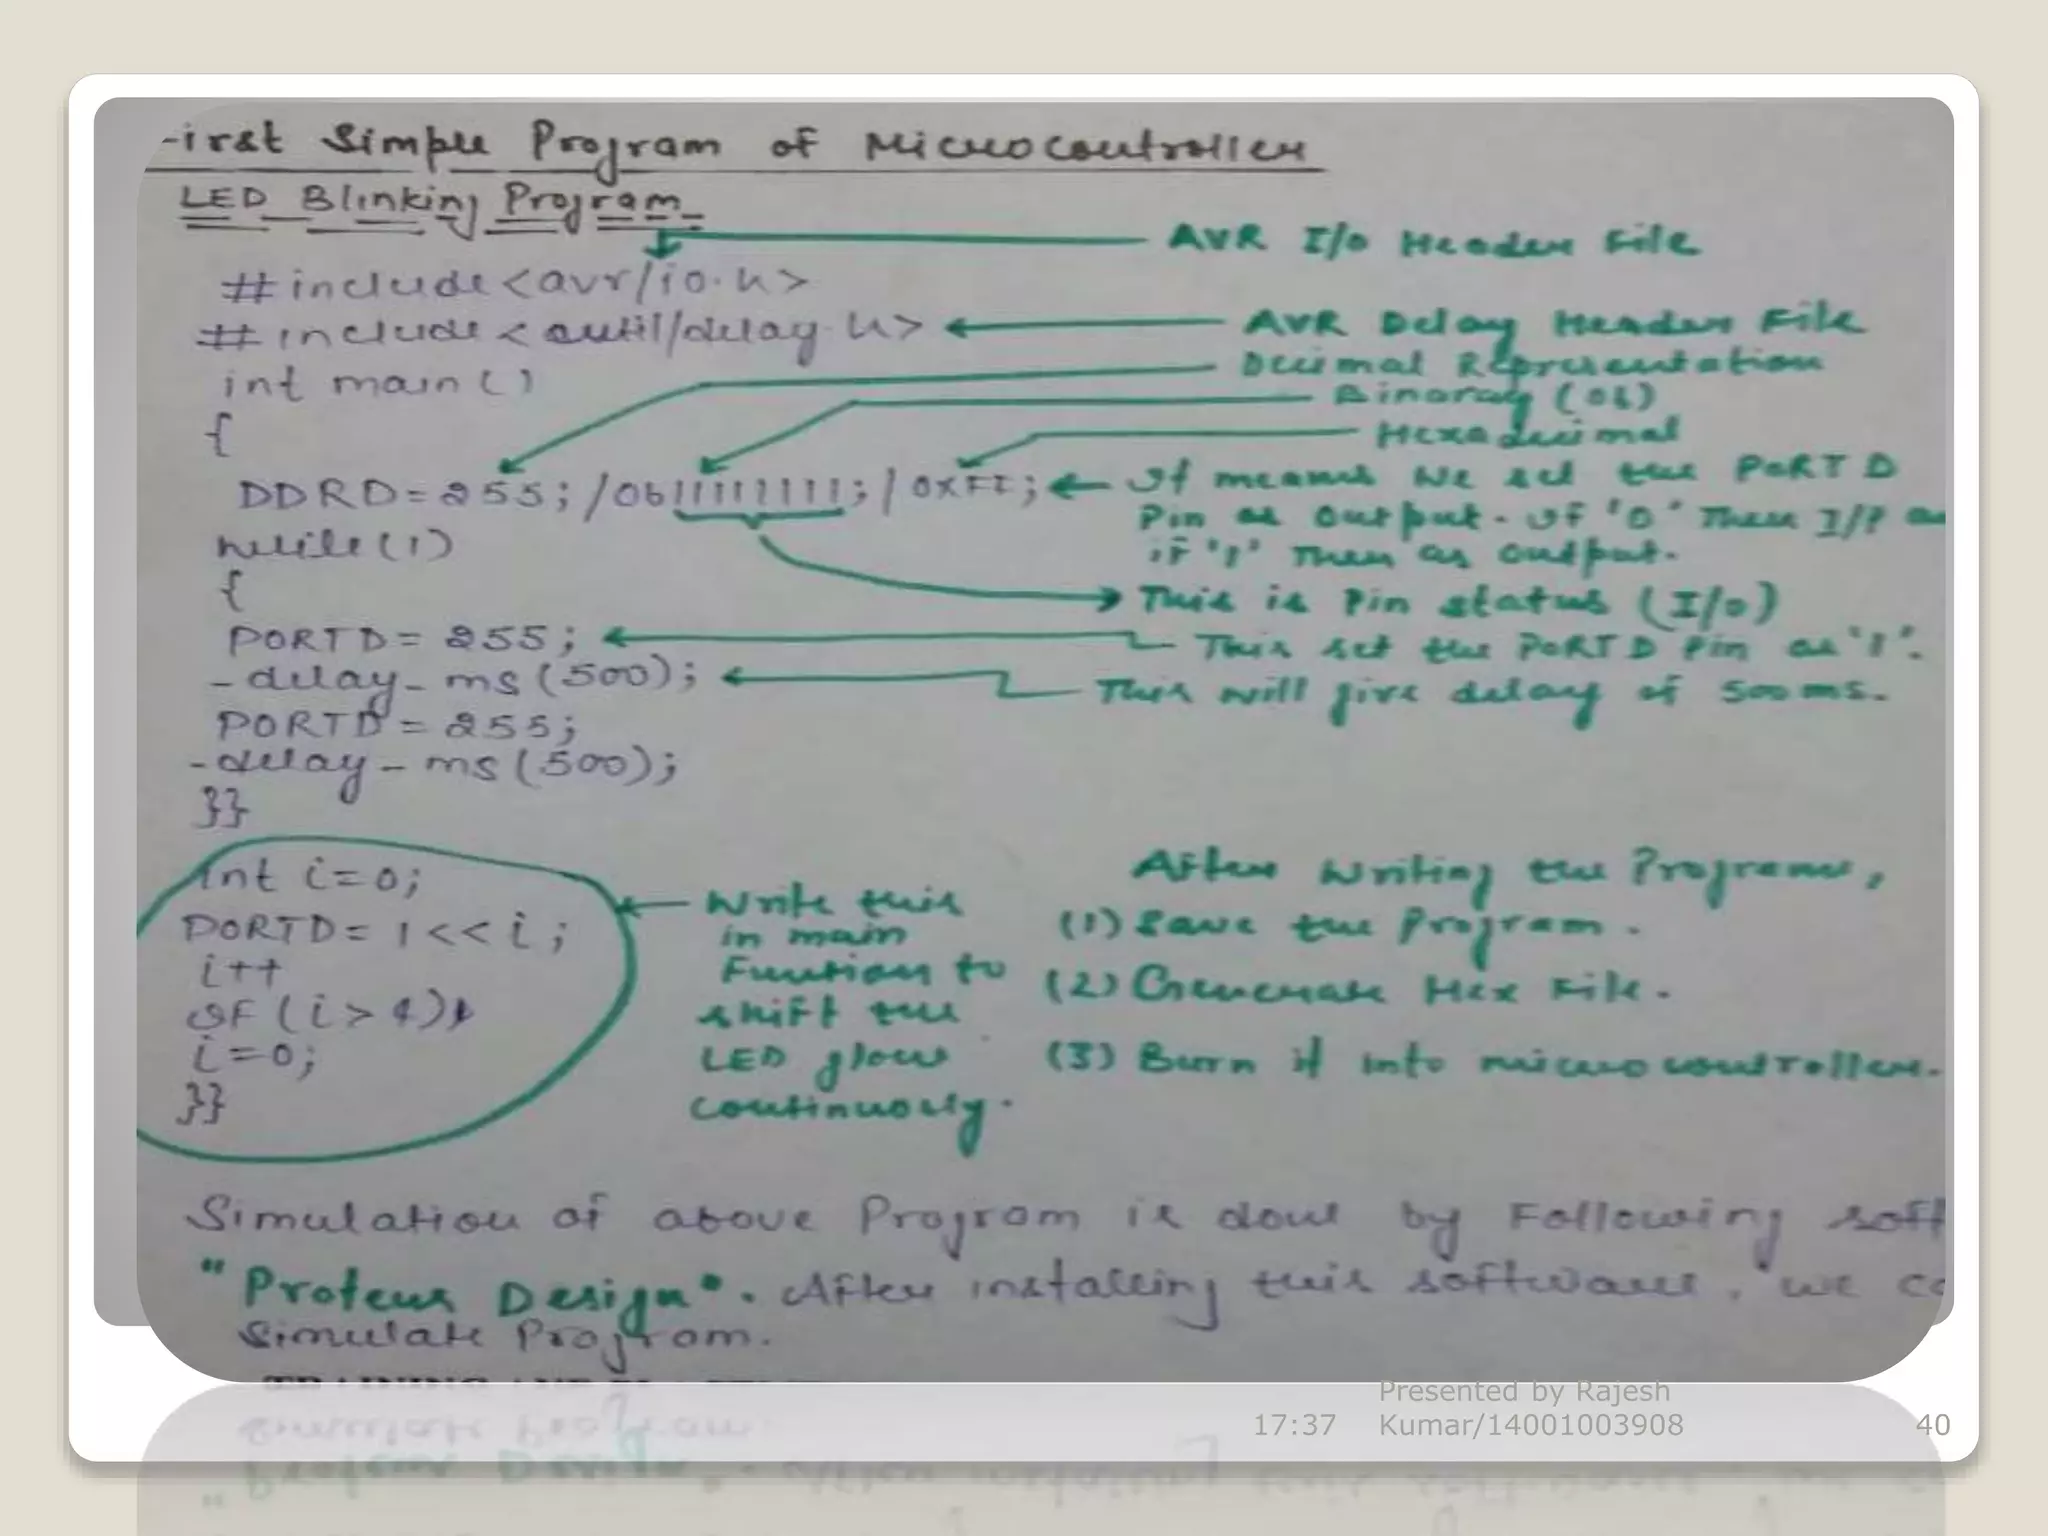 First Simple Program of Microcontroller
LED Blinking Program
AVR I/O Header File
#include<avr/io.h>
#include<util/delay.h>
AVR Delay Header File
int main()
Decimal Representation
Binaray (0b)
{
Hexadecimal
DDRD=255; /0b11111111; / 0xFF;
It means we set the PORT D
Pin as output. If '0' Then I/P
if '1' Then as output.
while(1)
{
This is Pin status (I/O)
PORTD= 255;
This set the PORTD Pin as '1'.
-delay-ms(500);
This will give delay of 500ms.
PORTD=255;
-delay-ms(500);
}}
int i=0;
PORTD= 1<<i;
i++
If (i>4)
i=0;
}}
Write this
in main
Function to
shift the
LED glow
continuosly.
After Writing the Programe,
(1) Save the Program.
(2) Generate Hex File.
(3) Burn it into microcontroller.
Simulation of above Program is done by Following soft
"Proteus Design". After installing this software, we
Simulate Program.
17:37
Presented by Rajesh
Kumar/14001003908
40